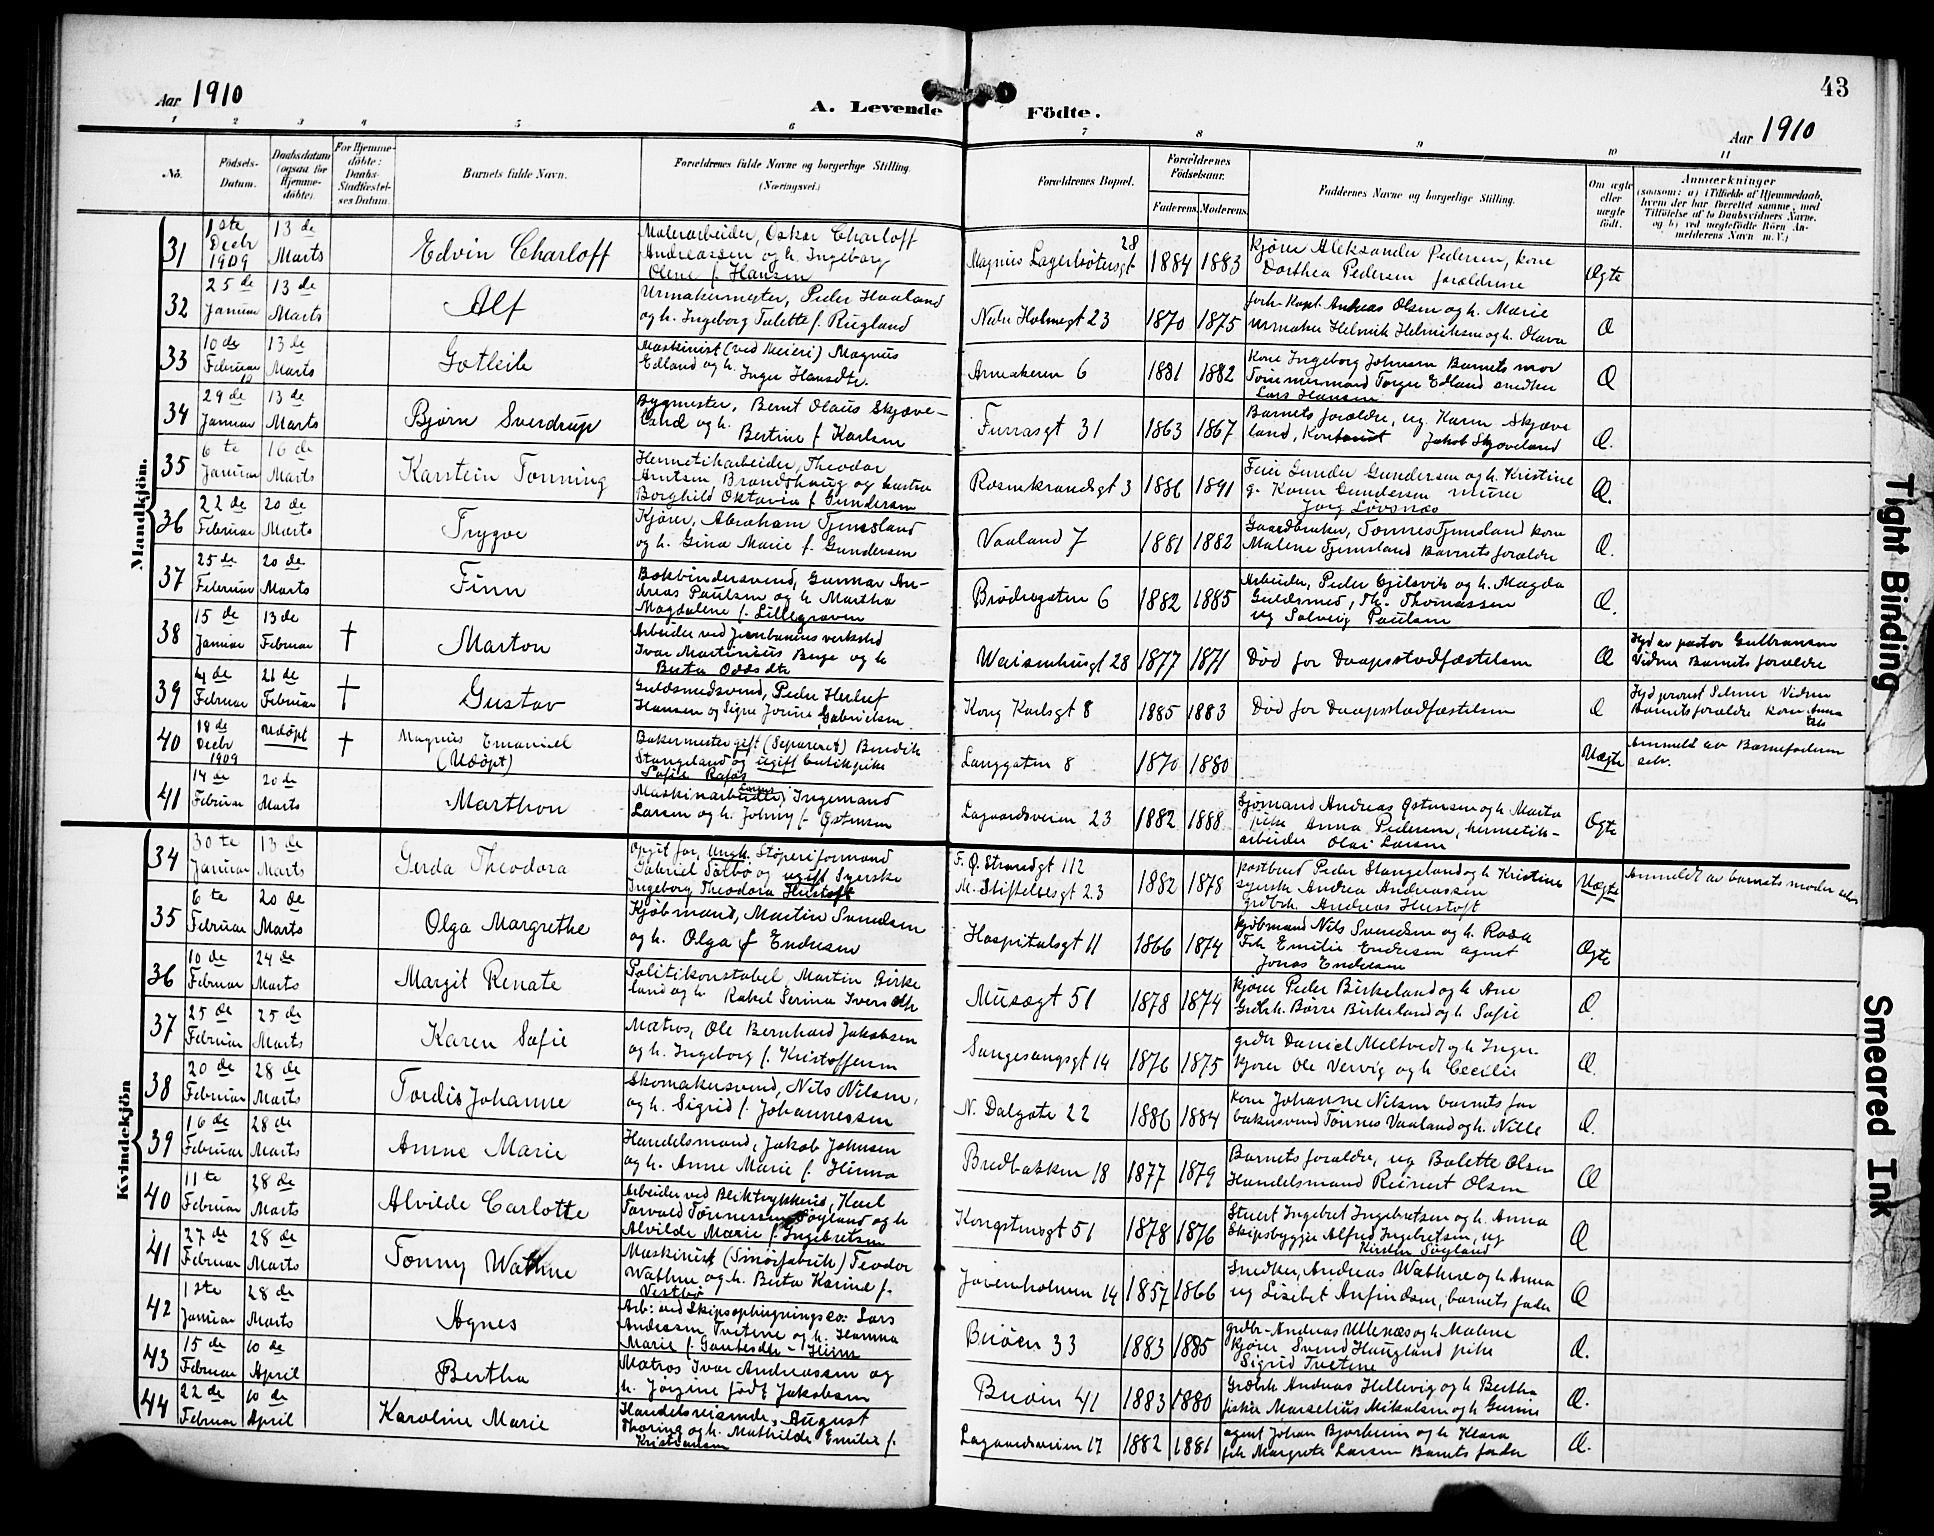 43
Aar 1910
A. Levende
Födte.
Aar 1910
1 2 3 4 5 6 7 8 9 10 11
No.
Födsels-
Datum.
Daabsdatum
(ogsaa for
Hjemme-
döbte).
For Hjemme-
döbte:
Daabs-
Stadfæstel-
ses Datum.
Barnets fulde Navn.
Forældrenes fulde Navne og borgerlige Stilling.
(Næringsvei.)
Forældrenes Bopæl.
Forældrenes
Födselsaar.
Faderens. Moderens.
Faddernes Navne og borgerlige Stilling.
Om ægte
eller
uægte
födt.
Anmærkninger
(saasom: a) i Tilfælde af Hjemmedaab,
hvem der har forrettet samme, med
Tilföielse af to Daabsvidners Navne,
og b) ved uægtefödte Börn An-
melderens Navn m. V.)
Mandkjön.
31 1ste Decbr 1909 13de Marts Edvin Charloff
Malerarbeider, Oskar Charloff
Andreassen og h. Ingeborg
Oline f. Hansen
Magnus Lagerbøtersgt 28 1884 1883
Kjører Aleksander Pedersen, kone
Dorthea Pedersen forældrene
Ægte
32 25de Januar 13de Marts Alf
Urmakermester, Peder Haaland
og h. Ingeborg Talette f. Rugland
Nedre Holmegt 23 1870 1875
Andreas Olsen og h. Marie
urmaker Helmik Helmiksen og h. Olava
Æ
33 10de Februar 13de Marts Gotleik
Maskinist (ved Meieri) Magnus
Edland og h. Inger Hansdtr.
6 1881 1882
Kone Ingeborg Johnsen Barnets mor
Tømmermand Torger Edland snedker
Lars Hansen
Æ
34 29de Januar 13de Marts Bjørn Sverdrup
Bygmester, Bernt Olaus Skjæve-
land og h.
Bertine f Karlsen
Furrasgt 31 1863 1867
Barnets forældre, ug. Karen Skjæve
land, Kontorist Jakob Skjæveland
Æ.
35 6te Januar 16de Marts Karstein Tonning
Hermetikarbeider, Theodor
Arntsen Brandshaug og hustru
Borghild Oktavia f. Gundersen
Rosenkrandsgt 3 1886 1891
Feier Gunder Gundersen og h. Kristine
g. Karen Gundersen murer
Jørg Løvsnæs
Æ.
36 22de Februar 20de Marts Trygve
Kjører, Abraham Tjemsland
og h. Gina Marie f. Gundersen
Vaaland 7 1881 1882
Gaardbruker, Tønnes Tjemsland kone
Malene Tjemsland Barnets forældre
Æ.
37 25de Februar 20de Marts Finn
Bokbindersvend, Gunnar An-
dreas Paulsen og h Martha
Magdalene f. Lillegraven
Brødregaten 6 1882 1885
Arbeider, Peder Gjilsvik og h. Magda
Guldsmed, Th. Thomassen
ug Solveig Paulsen
Æ.
38 15de Januar 13de Februar † Marton
Arbeider ved Jernbanens verksted
Ivar Martinius Berge og h
Berta Oddsdtr
Waisenhusgt 28 1877 1871
Død før Daapsstadfæstelsen
Æ
Hjd av pastor Gulbransen
Vidner Barnets forældre
39 4de Februar 21de Februar † Gustav
Guldsmedsvend, Peder Herlef
Hansen og Signe Jorine Gabrielsen
Kong Karlsgt 8 1885 1883
Død før Daapsstadfæstelsen
Æ
Hjd provst Selmer Vidner
Barnets forældre kone Anna
40 18de Decbr 1909 udøpt † Magnus Emanuel
(Udøpt)
Bakermester gift (Separeret) Bendik
Stangeland og ugift butikpike
Sofie Rafos
Langgaten 8 1870 1880
Uægte
Anmeldt av Barnefaderen
selv.
41 14de Februar 20de Marts Marthon
Maskinarbeider, Ingemand
Larsen og h. Johny f. Østensen
Lagaardsveien 23 1882 1888
Sjømand Andreas Østensen og h. Marta
pike Anna Pedersen, hermetik-
arbeider Olai Larsen
Ægte
Kvindekjön
34 30te Januar 13de Marts Gerda Theodora
Opgit far, Ungk. Støperiformand
Gabriel Salbø og ugift Syerske
Ingeborg Theodora Hustoft
F. Ø. Strandgt 112
M. Stiftelsesgt 23 1882 1878
postbud Peder Stangeland og h Kristine
syerske Andrea Andreassen
Grdbr. Andreas Hustoft
Uægte
Anmeldt av barnets moder selv
35 6te Februar 20de Marts Olga Margrethe
Kjøbmand, Martin Svendsen
og h. Olga f Endresen
Hospitalsgt 11 1866 1874
Kjøbmand Nils Svendsen og h. Rosa
Frk Emilie Endresen agent
Jonas Endresen
Ægte
36 10de Februar 24de Marts Margit Renate
Politikonstabel, Martin Birke
land og h Rakel Serina Iversdtr
Musægt 51 1878 1874
Kjører Peder Birkeland og h Ane
Grdbr. Børre Birkeland og h Sofie
Æ.
37 25de Februar 25de Marts Karen Sofie
Matros, Ole Bernhard Jakobsen
og h. Ingeborg f. Kristoffersen
Sangesangsgt 14 1876 1875
grdbr Daniel Meltvedt og h Inger
Kjører Ole Vervig og h Cecilie
Æ.
38 20de Februar 28de Marts Tordis Johanne
Skomakersvend, Nils Nilsen,
og h. Sigrid f. Johannessen
N. Dalgate 22 1886 1884
Kone Johanne Nilsen barnets far
bakersvend Tønnes Vaaland og h. Nille
Æ.
39 16de Februar 28de Marts Anna Marie
Handelsmand, Jakob Johnsen
og h. Anne Marie f. Hinna
Bredbakken 18 1877 1879
Barnets forældre, ug Bolette Olsen
Handelsmand Reinert Olsen
Æ
40 11te Februar 28de Marts Alvilde Carlotte
Arbeider ved Bliktrykkeriet, Karl
Torvald Tønnessen Søyland og h
Alvilde Marie f. Ingebretsen
Kongstensgt 51 1878 1876
Stuert Ingebret Ingebretsen og h. Anna
Skipsbygger Alfred Ingebretsen, ug
Kirsten Søyland
Æ
41 27de Februar 28de Marts Tonny Wathne
Maskinist (Smørfabrik) Teodor
Wathne og h. Berta Karine f.
Vestbø
Jørenholmen 14 1857 1866
Snedker, Andreas Wathne og h Anna
ug Lisebet Anfindsen, barnets fader
Æ
42 1ste Januar 28de Marts Agnes
Arb: ved Skipsophugningsco: Lars
Andersen Tvetene og h. Hanna
Marie f. Gautesdtr - Heien
Buøen 33 1883 1885
grdbr- Andreas Ullenæs og h Malene
Kjører Svend Haugland pike
Sigrid Tvetene
Æ.
43 15de Februar 10de April Bertha
Matros Ivar Andreassen og
h. Jørgine født Jakobsen
Buøen 41 1883 1880
Grdbr Andreas Hellevig og h Bertha
fisker Marselius Mikalsen og h Gurine
Æ.
44 22de Februar 10de April Karoline Marie
Handelsreisende, August
Thoring og h. Mathilde Emilie f.
Kristiansen
Lagaardsveien 17 1882 1881
agent Johan Bjorheim og h Klara
frk Margrete Larsen Barnets fader
Æ.
Tight Binding
Smeared Ink